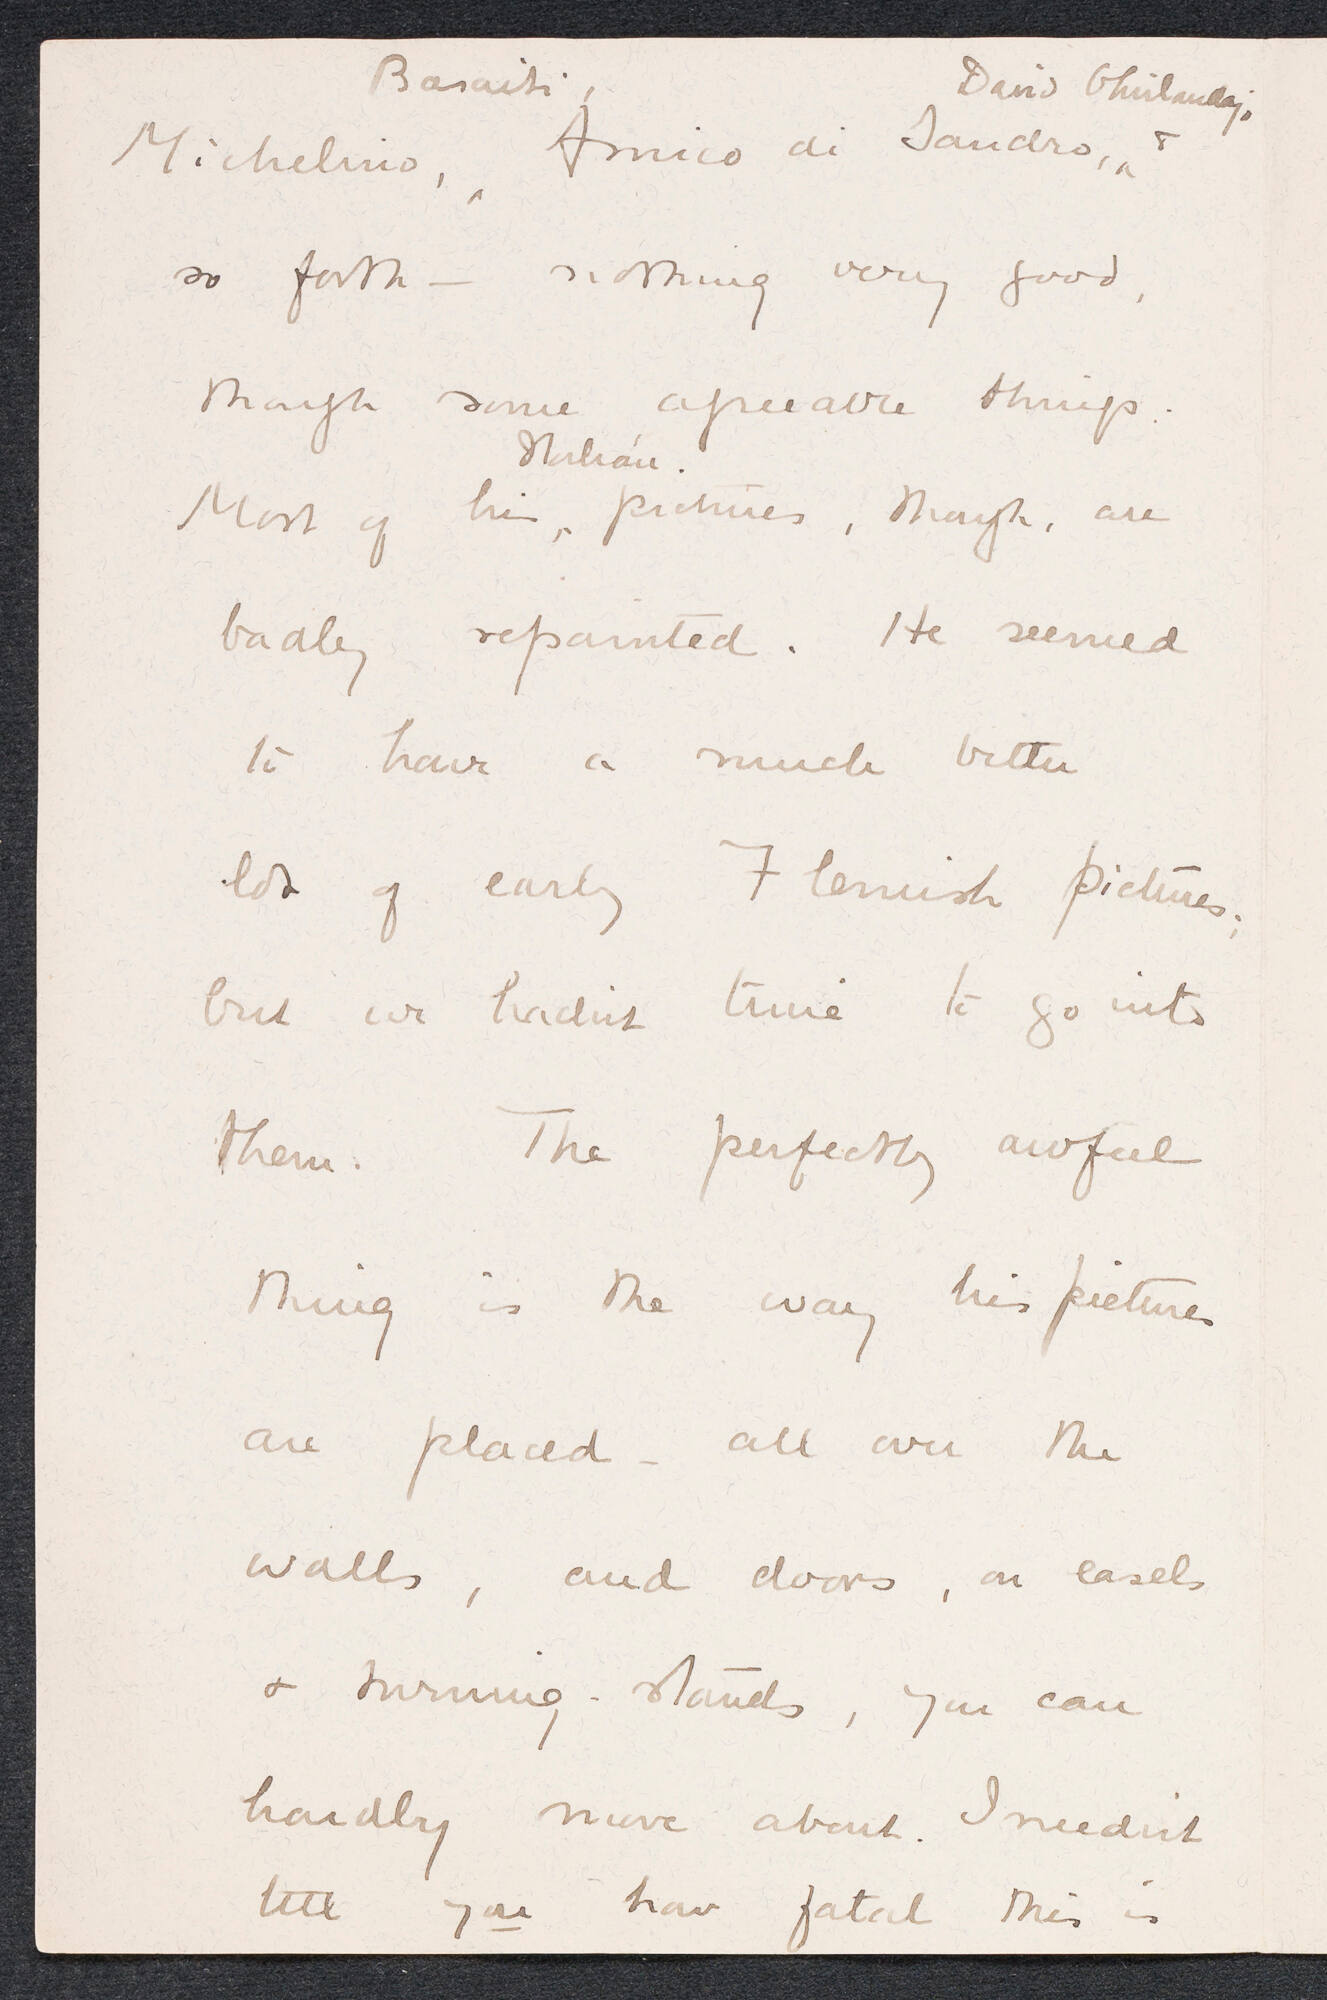 Basaiti, David Ghirlandajo
Michelino, ^ Amico di Sandro, ^ &
so forth — nothing very good,
though some agreeable things.
Italian.
Most of his ^ pictures, though, are
badly repainted. He seemed
to have a much better
lot of early Flemish pictures;
but we hadn't time to go into
them. The perfectly awful
thing is the way his pictures
are placed - all over the
walls, and doors, on easels
& turning-stands, you can
hardly move about. I needn't
tell you how fatal this is